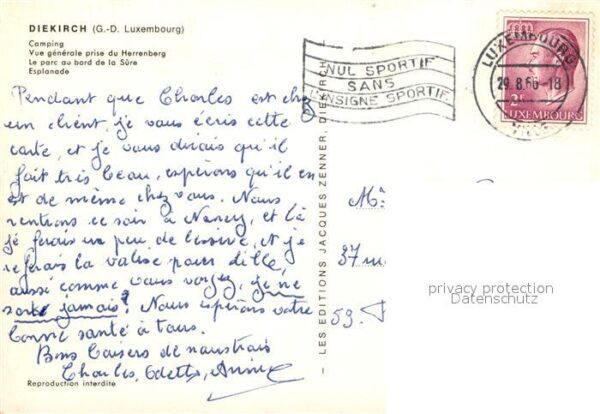 DIEKIRCH (G.-D. Luxembourg)
Camping
Vue générale prise du Herrenberg
Le parc au bord de la Sûre
Esplanade
Pendant que Charles est chez
un client, je vous écris cette
carte, et je vous dirais qu'il
fait très beau, espérons qu'il en
est de même chez vous. Nous
rentrons ce soir à Nancy, et là
je ferais un peu de lessive, et je
referais la valise pour Lille,
aussi comme vous voyez, je ne
sorts jamais! Nous espérons votre
bonne santé à tous.
Bons baisers de nous trois
Charles, Odette, Annie
Reproduction interdite
LES EDITIONS JACQUES ZENNER, DIEKIRCH
NUL SPORTIF
SANS
L'INSIGNE SPORTIF
LUXEMBOURG
29.8.66-18
VILLE
LUXEMBOURG
37
59.
privacy protection
Datenschutz